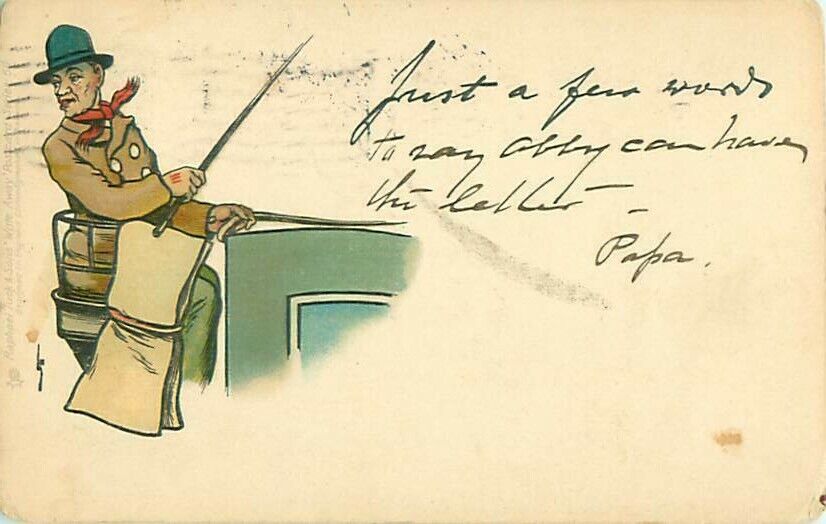 Just a few words
to say Abby can have
the letter —
Papa.
Raphael Tuck & Sons' "Write Away" Postcard